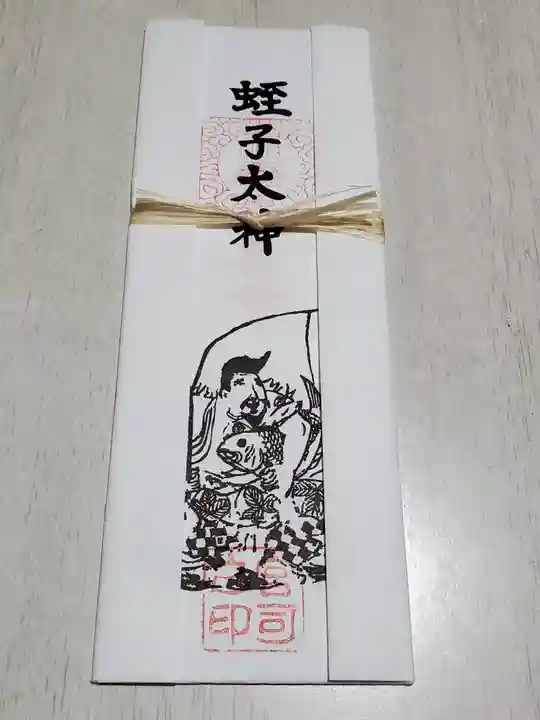 蛭子太神
宮司
之印